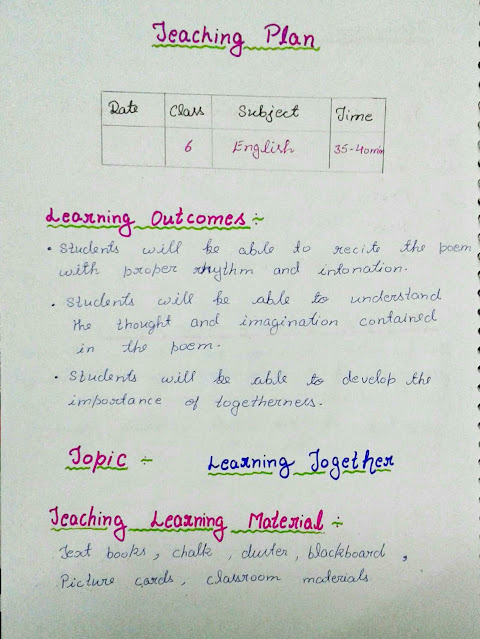 Teaching Plan
Date Class Subject Time
6 English 35-40min
Learning Outcomes :-
• Students will be able to recite the poem
with proper rhythm and intonation.
• Students will be able to understand
the thought and imagination contained
in the poem.
• Students will be able to develop the
importance of togetherness.
Topic :- Learning Together
Teaching Learning Material :-
Text books, chalk, duster, blackboard,
Picture cards, classroom materials